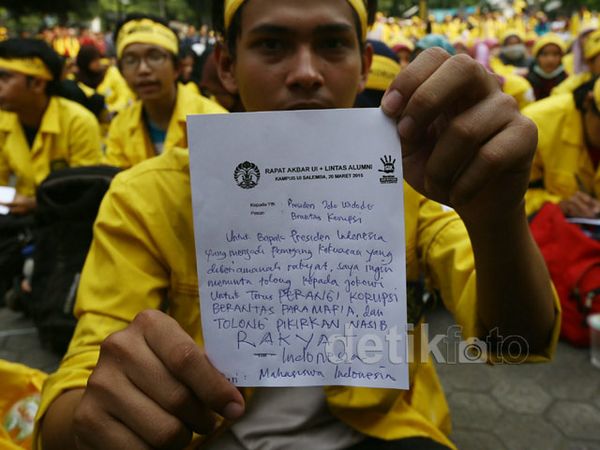 RAPAT AKBAR UI + LINTAS ALUMNI
KAMPUS UI SALEMBA, 20 MARET 2015
Kepada Yth. Presiden Joko Widodo
Pesan: Berantas Korupsi
Untuk Bapak Presiden Indonesia
yang menjadi Pemegang Kekuasaan yang
diberi amanah rakyat, saya ingin
meminta tolong kepada jokowi
Untuk Terus PERANGI KORUPSI
BERANTAS PARA MAFIA, dan
TOLONG PIKIRKAN NASIB
RAKYAT
Indonesia
Mahasiswa Indonesia
detikfoto